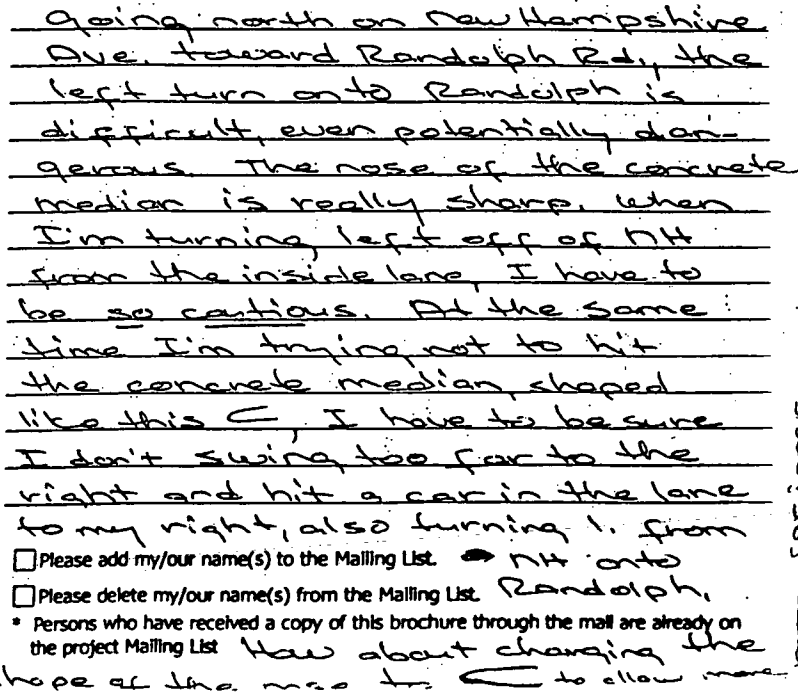 going north on New Hampshire
Ave. toward Randolph Rd., the
left turn onto Randolph is
difficult, even potentially dan-
gerous. The nose of the concrete
median is really sharp. When
I'm turning left off of NH
from the inside lane, I have to
be so cautious. At the same
time I'm trying not to hit
the concrete median, shaped
like this ⊂, I have to be sure
I don't swing too far to the
right and hit a car in the lane
to my right, also turning l. from
☐ Please add my/our name(s) to the Mailing List. NH onto
☐ Please delete my/our name(s) from the Mailing List. Randolph.
* Persons who have received a copy of this brochure through the mail are already on
the project Mailing List How about changing the
hape of the nose to ⊂ to allow more